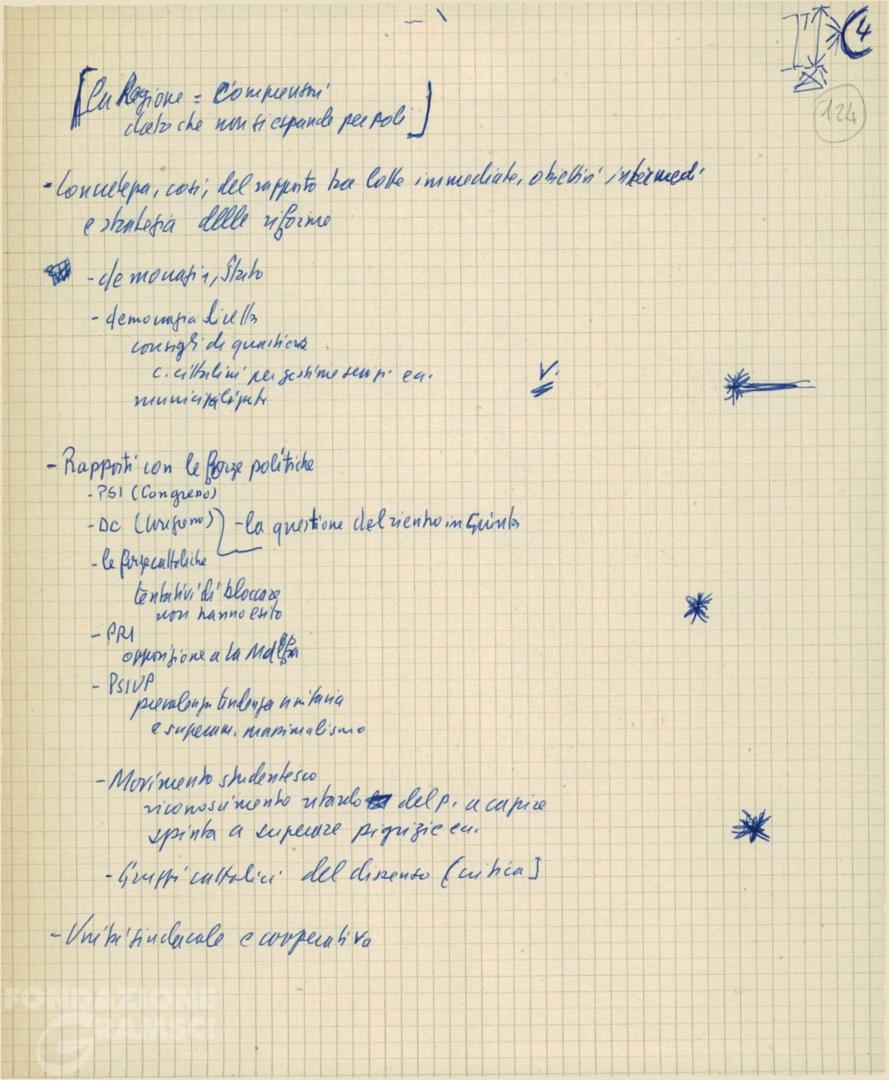 4
124
[La Regione = Comprensori
dato che non si espande per poli]
- Concretezza, così, del rapporto tra lotte immediate, obiettivi intermedi
e strategia delle riforme
- democrazia, Stato
- democrazia di
consigli di quartiere
c. cittadini per gestione ecc.
municipalizzate
- Rapporti con le forze politiche
- PSI (Congresso)
- DC (Congresso) - la questione del rientro in Giunta
- le forze cattoliche
tentativi di bloccare
non hanno esito
- PRI
opposizione a La Malfa
- PSIUP
prevalenza tendenza unitaria
e superam. massimalismo
- Movimento studentesco
riconoscimento ritardo del p. a capire
spinta a superare pigrizie ecc.
- Gruppi cattolici del dissenso (critica)
- Unità sindacale e cooperativa
FONDAZIONE
GRAMSCI